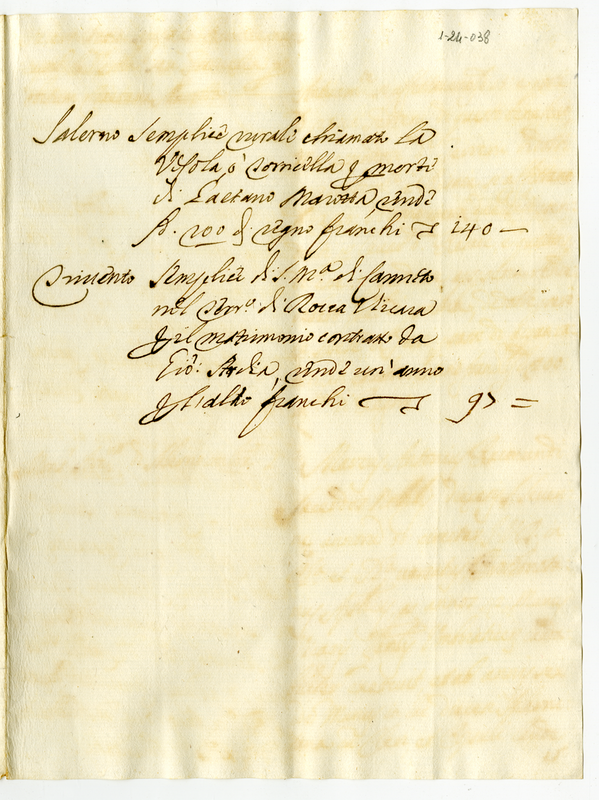 1-24-038
Salerno Semplice rurale chiamato la
Vesola, ò Torricella p morte
di Gaetano Marotta, rende
200 di regno franchi 140 —
Trivento Semplice di S. Mª. di Canneto
nel terr.º di Rocca Vivara
p il matrimonio contratto da
Gio: rende un' anno
p l'altro franchi 97 =